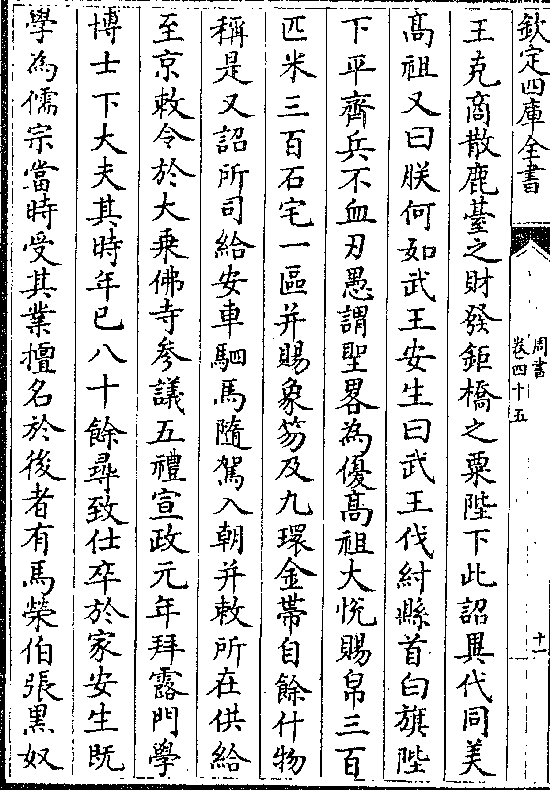 欽定四庫全書
周書
卷四十五
十一
王克商散鹿䑓之財發鉅橋之粟陛下此詔異代同美
髙祖又曰朕何如武王安生曰武王伐紂縣首白旗陛
下平齊兵不血刃愚謂聖畧為優髙祖大悅賜帛三百
匹米三百石宅一區并賜象笏及九環金帶自餘什物
稱是又詔所司給安車駟馬隨駕入朝并敕所在供給
至京敕令於大乗佛寺參議五禮宣政元年拜露門學
博士下大夫其時年已八十餘尋致仕卒於家安生既
學為儒宗當時受其業擅名於後者有馬榮伯張黑奴